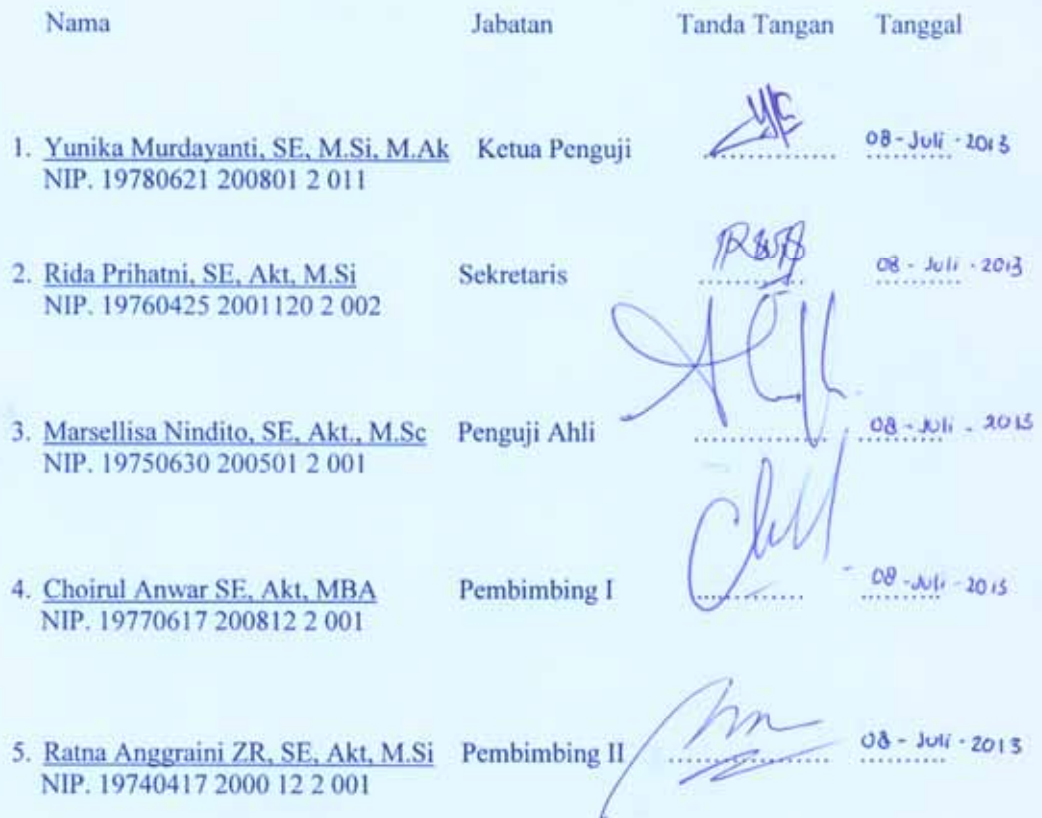 Nama Jabatan Tanda Tangan Tanggal
1. Yunika Murdayanti, SE, M.Si, M.Ak Ketua Penguji ............... 08-Juli-2013
NIP. 19780621 200801 2 011
2. Rida Prihatni, SE, Akt, M.Si Sekretaris ............... 08-Juli-2013
NIP. 19760425 2001120 2 002
3. Marsellisa Nindito, SE, Akt., M.Sc Penguji Ahli ............... 08-Juli-2013
NIP. 19750630 200501 2 001
4. Choirul Anwar SE, Akt, MBA Pembimbing I ............... 08-Juli-2013
NIP. 19770617 200812 2 001
5. Ratna Anggraini ZR, SE, Akt, M.Si Pembimbing II ............... 08-Juli-2013
NIP. 19740417 2000 12 2 001